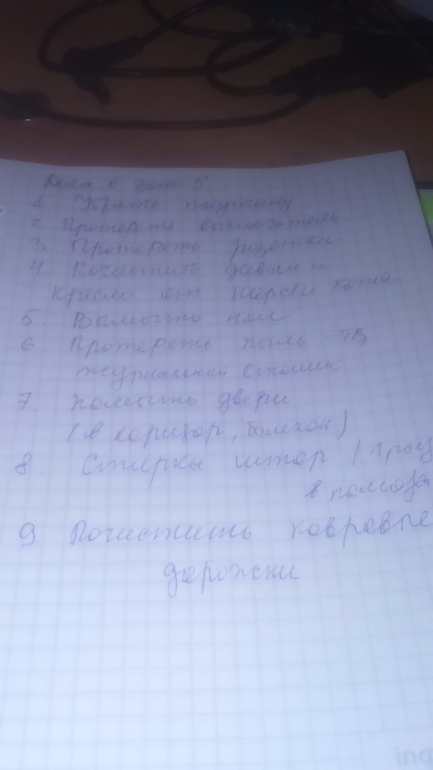 Дела в зоне 5.
1. Убрать паутину
2. Протереть выключатель
3. Протереть розетки
4. Почистить диван и
кресло от шерсти кота
5. Вымыть пол
6. Протереть пыль - ТВ,
журнальный столик
7. Помыть двери
(в коридор, балкон)
8. Стирка штор (1 раз
в полгода
9. Почистить ковровые
дорожки